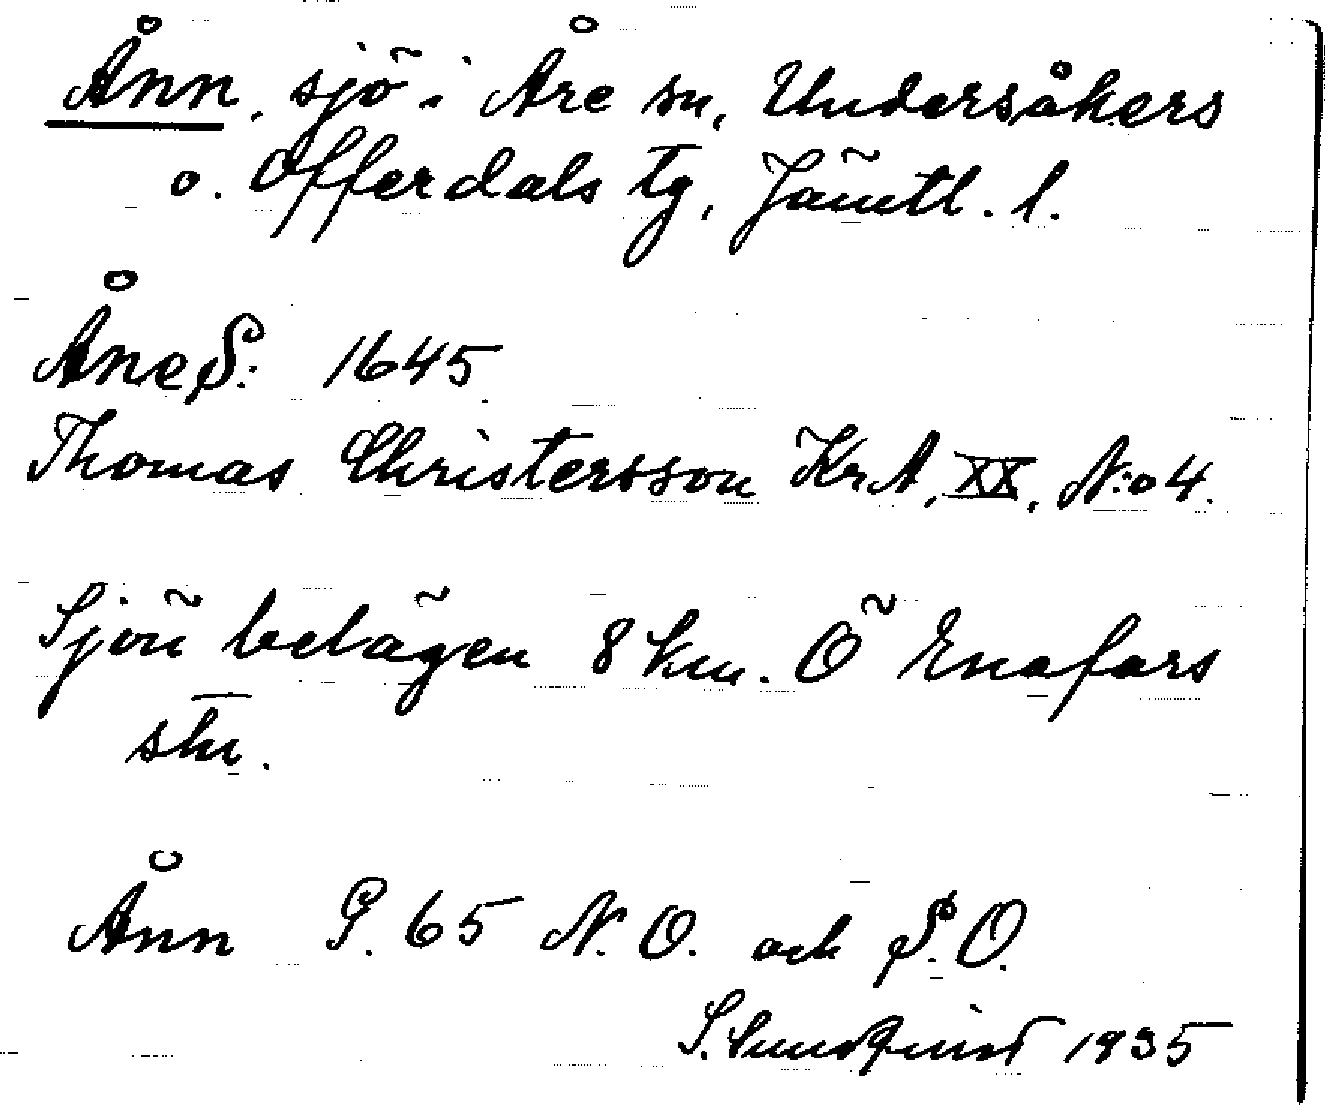 Ånn, sjö i Åre sn, Undersåkers
o. Offerdals tg, Jämtl. l.
Åne S: 1645
Thomas Christersson KrA, XX, N:o 4.
Sjön belägen 8 km. Ö Enafors
stn.
Ånn G. 65 N.O. och S.O.
S. Sundqvist 1935